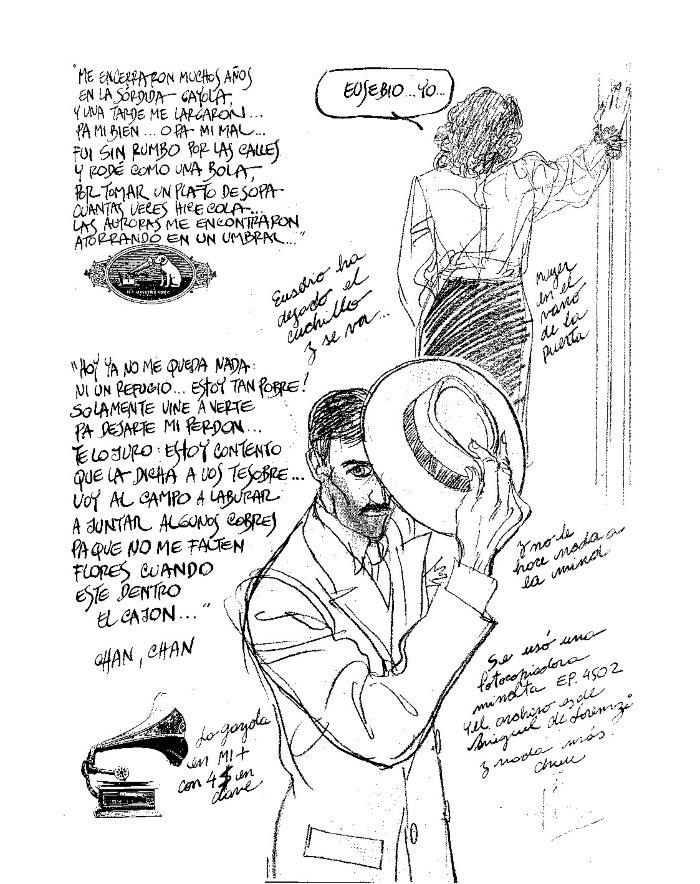 "ME ENCERRARON MUCHOS AÑOS
EN LA SÓRDIDA GAYOLA,
Y UNA TARDE ME LARGARON...
PA MI BIEN... O PA MI MAL...
FUI SIN RUMBO POR LAS CALLES
Y RODÉ COMO UNA BOLA,
POR TOMAR UN PLATO DE SOPA
CUANTAS VECES HICE COLA...
LAS AURORAS ME ENCONTRARON
ATORRANDO EN UN UMBRAL..."
HIS MASTER'S VOICE
EUSEBIO...YO...
Eusebio ha
dejado el
cuchillo
y se va...
Mujer
en el
vano
de la
puerta
"HOY YA NO ME QUEDA NADA:
NI UN REFUGIO... ESTOY TAN POBRE!
SOLAMENTE VINE A VERTE
PA DEJARTE MI PERDON...
TE LO JURO: ESTOY CONTENTO
QUE LA DICHA A VOS TE SOBRE...
VOY AL CAMPO A LABURAR
A JUNTAR ALGUNOS COBRES
PA QUE NO ME FALTEN
FLORES CUANDO
ESTE DENTRO
EL CAJON..."
CHAN, CHAN
y no le
hace nada a
la mina
Se usó una
fotocopiadora
minolta EP. 4502
y el archivo es de
Miguel de Lorenzi
y nada más.
chau
La gayola
en MI+
con 4 # en
clave